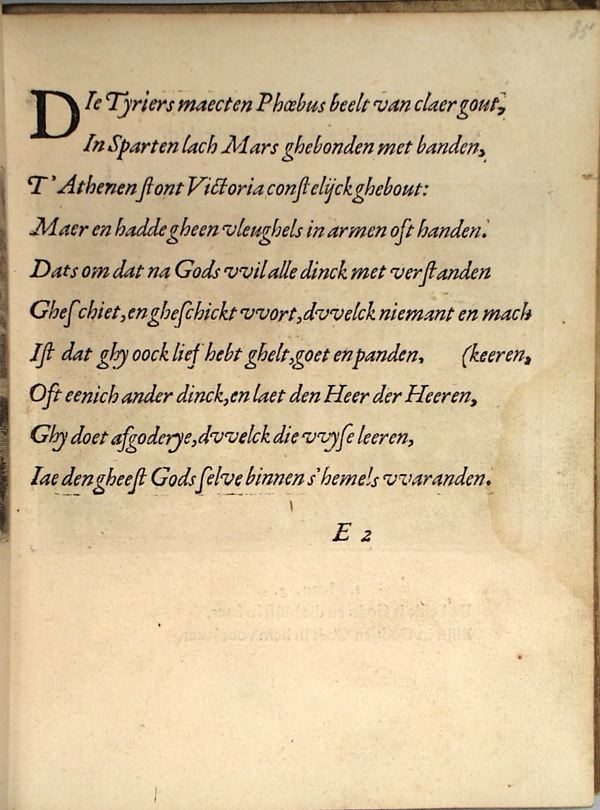 35
DIe Tyriers maecten Phœbus beelt van claer gout,
In Sparten lach Mars ghebonden met banden,
T'Athenen ſtont Victoria conſtelijck ghebout:
Maer en hadde gheen vleughels in armen oft handen.
Dats om dat na Gods vvil alle dinck met verſtanden
Gheſchiet, en gheſchickt vvort, dvvelck niemant en mach
Iſt dat ghy oock lief hebt ghelt, goet en panden, (keeren,
Oft eenich ander dinck, en laet den Heer der Heeren,
Ghy doet afgoderye, dvvelck die vvyſe leeren,
Iae den gheeſt Gods ſelve binnen s'hemels vvaranden.
E 2